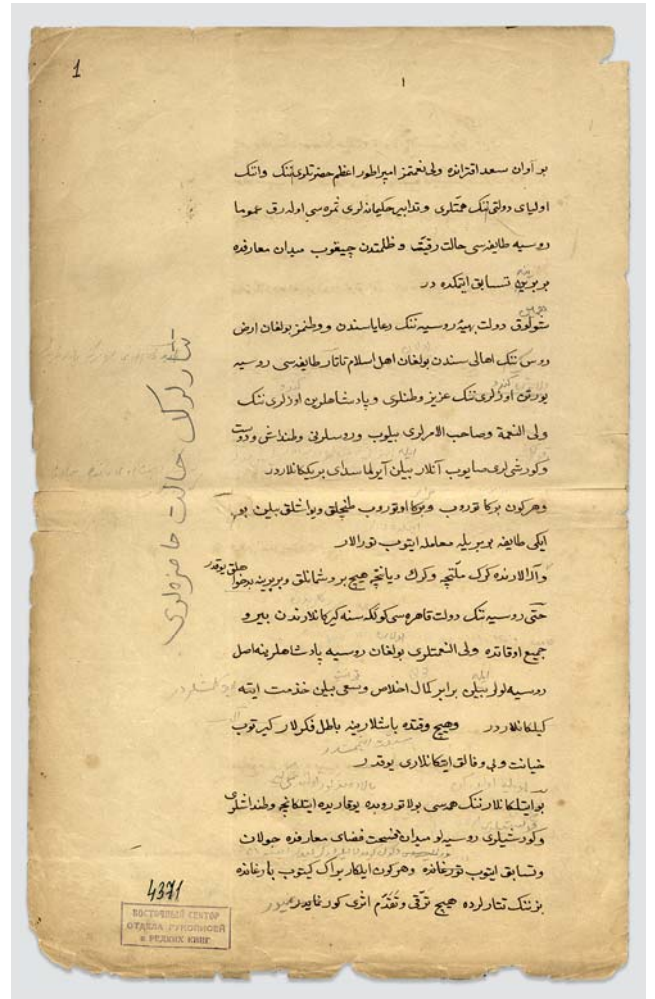 1
١
بو آوان سعد اقترانده ولی نعمتمز امپراطور اعظم حضرتلری‌ننک و اننک
اولیای دولتی‌ننک همّتلری و تدابیر حکیمانه‌لری ثمره‌سی اوله‌رق عموما
روسیه طایفه‌سی حالت رقیّت و ظلمتدن چیقوب میدان معارفده
بربرین تسابق ایتمکده در
شولوق دولت بهیهٔ روسیه‌ننک رعایاسندن و وطنمز بولغان ارض
روس‌ننک اهالی‌سندن بولغان اهل اسلام تاتار طایفه‌سی روسیه
یورتن اوزلری‌ننک عزیز وطنلری و پادشاهلرین اوزلری‌ننک
ولی النعمة وصاحب الامرلری بیلوب و روسلرنی وطنداش و دوست
و کورشی‌لری صایوب آنلار بیلن آیرلماسدای بریککانلاردر
وهر کون برکا توروب و برکا اوتوروب طنچلق ویواشلق بیلن بو
ایکی طایفه بربریله معامله ایتوب تورالار
وآرالارنده کرک ملّتچه وکرک دیانچه هیچ بر دشمانلق و بربرینه بدخواهلق یوقدر
حتّی روسیه‌ننک دولت قاهره‌سی کولکه‌سنه کیرکانلارندن بیرو
جمیع اوقاتده ولی النعمتلری بولغان روسیه پادشاهلرینه اصل
روسیه‌لولر بیلن برابر کمال اخلاص وسعی بیلن خدمت ایته
کیلکانلاردر وهیچ وقتده باشلارینه باطل فکرلار کیرتوب
خیانت و بی وفالق ایتکانلاری یوقدر
بو ایتلکانلارننک همه‌سی بولا توروبده یوقاریده ایتلکانچه وطنداشلری
وکورشیلری روسیه‌لو میدان فسحت فضای معارفده جولان
وتسابق ایتوب تورغانده وهرکون ایلکارراک کیتوب بارغانده
بزننک تتارلرده هیچ ترقّی وتقدّم اثری کورنمایدر
تتارلرنک حالت حاضره‌لری
4371
ВОСТОЧНЫЙ СЕКТОР
ОТДЕЛА РУКОПИСЕЙ
и РЕДКИХ КНИГ